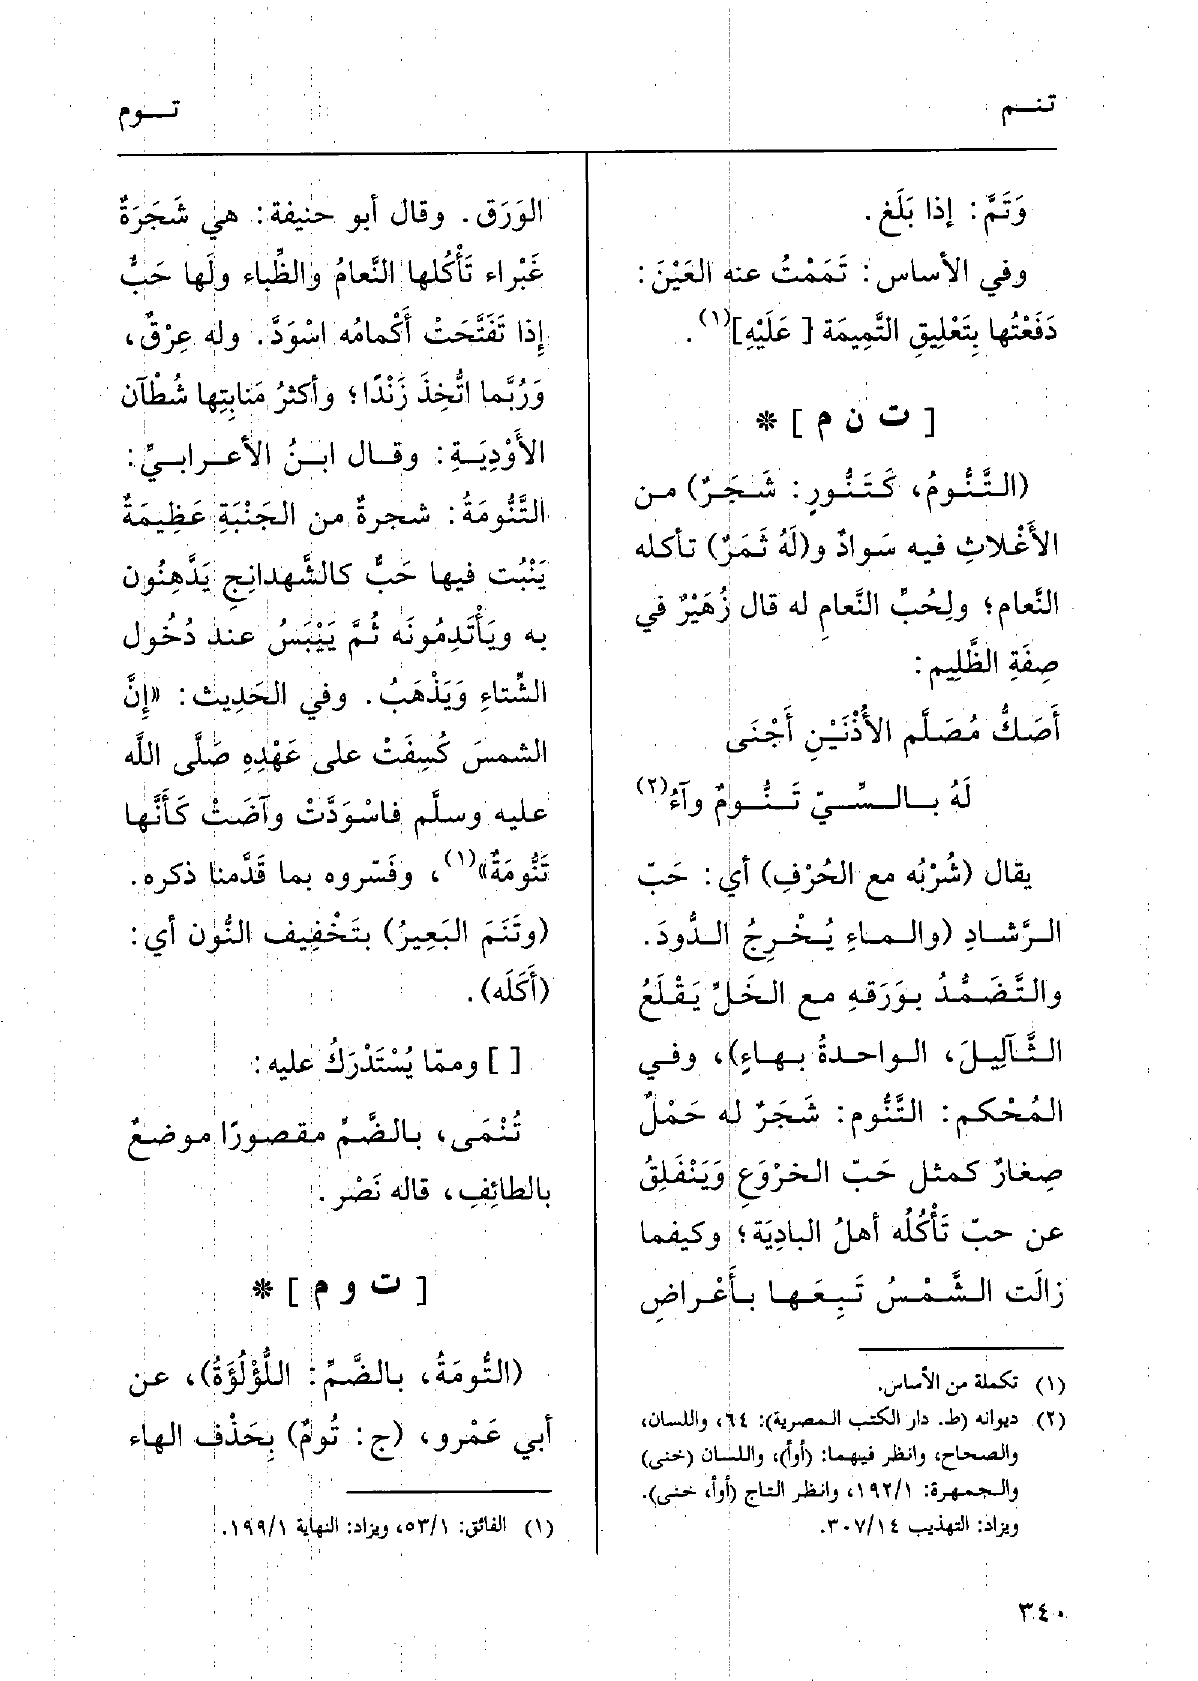 تنــم
تــوم
وَتَمَّ: إذا بَلَغ.
وفي الأساس: تَمَمْتُ عنه العَيْنَ:
دَفَعْتُها بِتَعْلِيقِ التَّمِيمَة [عَلَيْهِ](١).
[ ت ن م ] *
(التَّنُّومُ، كَتَنُّورٍ: شَجَرٌ) من
الأَغْلاثِ فيه سَوادٌ و(لَهُ ثَمَرٌ) تأكله
النَّعام؛ ولِحُبِّ النَّعامِ له قال زُهَيْرٌ في
صِفَةِ الظَّلِيم:
أَصَكُّ مُصَلَّم الأُذْنَيْنِ أَجْنَى
لَهُ بــالــسِّــيّ تَــنُّــومٌ وآءُ(٢)
يقال (شُرْبُه مع الحُرْفِ) أي: حَبّ
الـرَّشـادِ (والـمـاءِ يُـخْـرِجُ الـدُّودَ.
والتَّضَمُّدُ بوَرَقهِ مع الخَلِّ يَقْلَعُ
الثَّآلِيلَ، الواحدةُ بهاءٍ)، وفي
المُحْكم: التَّنُّوم: شَجَرٌ له حَمْلٌ
صِغارٌ كمثل حَبّ الخِرْوَعِ وَيَنْفَلِقُ
عن حبّ تَأْكُلُه أهلُ البادِيَة؛ وكيفما
زالَت الشَّمْسُ تَبِعَها بأَعْراضِ
(١) تكملة من الأساس.
(٢) ديوانه (ط. دار الكتب المصرية): ٦٤، واللسان،
والصحاح، وانظر فيهما: (أوأ)، واللسان (خنى)
والجمهرة: ١/ ١٩٢، وانظر التاج (أوأ، خنى).
ويزاد: التهذيب ١٤/ ٣٠٧.
الوَرَق. وقال أبو حنيفة: هي شَجَرَةٌ
غَبْراء تَأْكلها النَّعامُ والظِّباء ولَها حَبٌّ
إِذا تَفَتَّحَتْ أَكْمامُه اسْوَدَّ. وله عِرْقٌ،
وَرُبَّما اتُّخِذَ زَنْدًا؛ وأكثرُ مَنابِتِها شُطْآن
الأَوْدِيَـةِ: وقـال ابـنُ الأعـرابـيِّ:
التَّنُّومَةُ: شجرةٌ من الجَنْبَةِ عَظِيمَةٌ
يَنْبُت فيها حَبٌّ كالشَّهدانِجِ يَدَّهِنُون
به ويَأْتَدِمُونَه ثُمَّ يَيْبَسُ عند دُخُول
الشِّتاءِ وَيَذْهَبُ. وفي الحَدِيث: «إِنَّ
الشمسَ كُسِفَتْ على عَهْدِهِ صَلَّى اللَّه
عليه وسلَّم فاسْوَدَّتْ وآضَتْ كَأَنَّها
تَنُّومَةٌ»(١)، وفَسّروه بما قَدَّمنا ذكره.
(وتَنَمَ البَعِيرُ) بتَخْفِيف النُّون أي:
(أَكَلَه).
[ ] وممّا يُسْتَدْرَكُ عليه:
تُنْمَى، بالضَّمِّ مقصورًا موضعٌ
بالطائِفِ، قاله نَصْر.
[ ت و م ] *
(التُّومَةُ، بالضَّمِّ: اللُّؤْلُؤَةُ)، عن
أبي عَمْرو، (ج: تُومٌ) بِحَذْف الهاء
(١) الفائق: ١/ ٥٣، ويزاد: النهاية ١/ ١٩٩.
٣٤٠